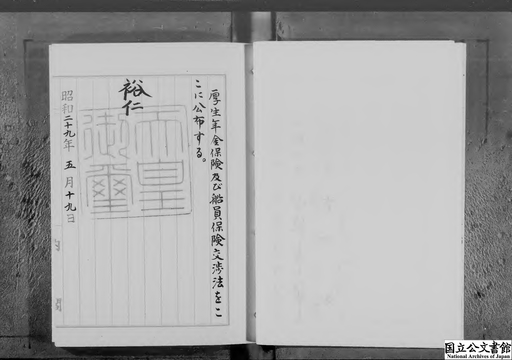 厚生年金保険及び船員保険交渉法をこ
こに公布する。
裕仁
天皇
御璽
昭和二十九年五月十九日
国立公文書館
National Archives of Japan